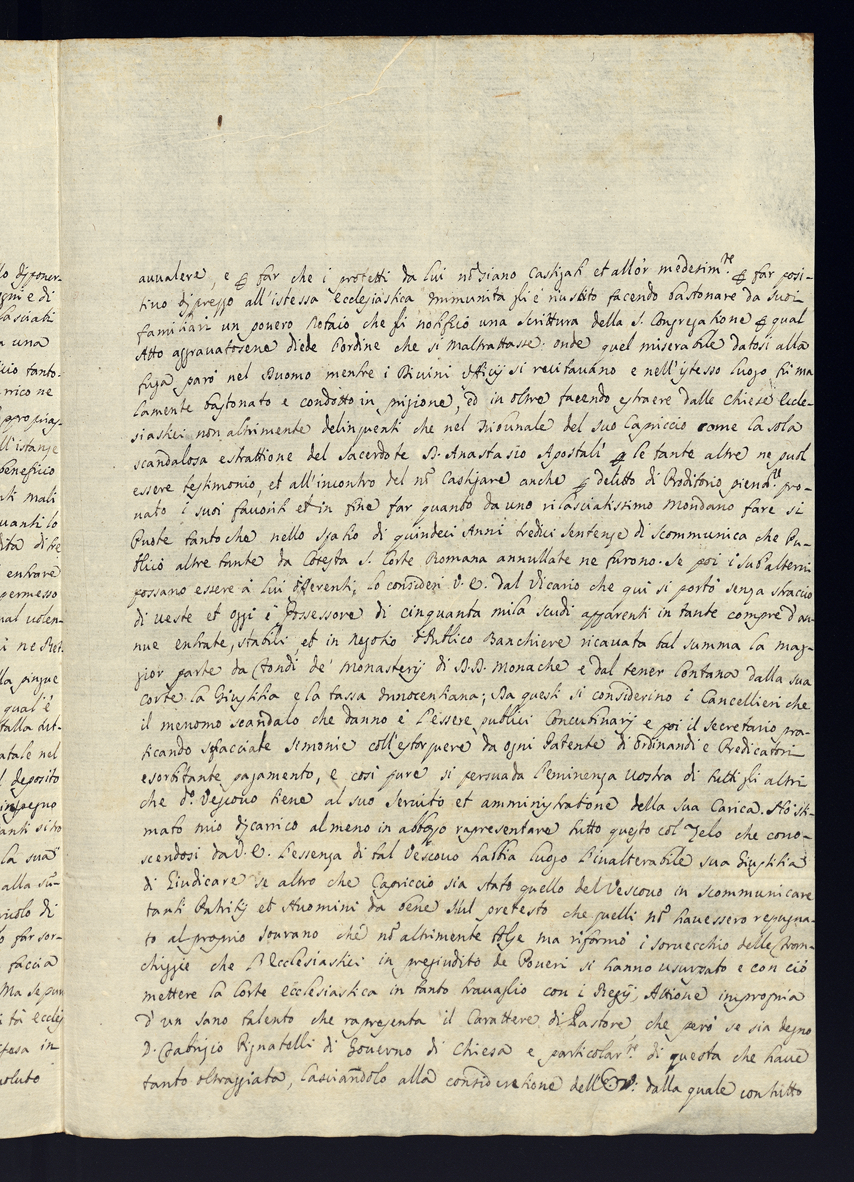 auualere, e p far che i protetti da lui nõ siano castigati et all'or medesim.te p far posi-
tiuo disprezzo all'istessa Ecclesiastica Immunità gli è riuscito facendo bastonare da suoi
familiari un pouero Notaio che gli notificò una scrittura della S. Congregatione p qual
Atto aggrauatosene diede l'ordine che si maltrattasse. onde quel miserabile datosi alla
fuga parò nel Duomo mentre i Diuini officij si recitauano e nell'istesso luogo fù ma
lamente bastonato e condotto in prigione, ed in oltre facendo estraere dalle chiese Eccle-
siastici non altrimente delinquenti che nel Tribunale del suo Capriccio come la sola
scandalosa estrattione del Sacerdote D. Anastasio Apostali p le tante altre ne puol
essere testimonio, et all'incontro del nõ castigare anche p delitto di Proditorio pienam.te pro-
uato i suoi fauoriti et in fine far quanto da uno rilasciatissimo Mondano fare si
Puote tanto che nello spatio di quindeci Anni tredici sentenze di scommunica che Pu-
blicò altre tante da Cotesta S. Corte Romana annullate ne furono. Se poi i subalterni
possano essere à lui differenti, lo consideri V. E. dal Vicario che qui si portò senza straccio
di ueste et oggi è Possessore di cinquanta mila scudi apparenti in tante compre d'an-
nue entrate, stabili, et in negotio di Publico Banchiere ricauata tal summa la mag-
gior parte da fondi de' Monasterij di D.D. Monache e dal tener lontana dalla sua
Corte la Giustitia e la tassa Innocentiana; Da questi si considerino i Cancellieri che
il menomo scandalo che danno è l'essere publici Concubinarij e poi il secretario pra-
ticando sfacciate simonie coll'estorquere da ogni Patente di ordinandi e Predicatori
esorbitante pagamento, e così pure si persuada l'eminenza Vostra di tutti gli altri
che d.o Vescouo tiene al suo seruitio et amministratione della sua Carica. Hò sti-
mato mio discarico almeno in abbozzo rapresentare tutto questo col Zelo che cono-
scendosi da V. E. l'essenza di tal Vescouo habbia luogo l'inalterabile sua Giustitia
di Giudicare se altro che Capriccio sia stato quello del Vescouo in scommunicare
tanti Patritij et Huomini da bene sul pretesto che quelli nõ hauessero repugna-
to al proprio sourano che nõ altrimente tolse ma riformò i souerchio delle
che l'Ecclesiastici in pregiuditio de Poueri si hanno usurpato e con ciò
mettere la Corte Ecclesiastica in tanto trauaglio con i Regij, Attione impropria
d'un sano talento che rapresenta il Carattere di Pastore, che però se sia degno
D. Fabrizio Pignatelli di Gouerno di Chiesa e particolar.te di questa che haue
tanto oltraggiata, lasciandolo alla consideratione dell'E.V. dalla quale con tutto